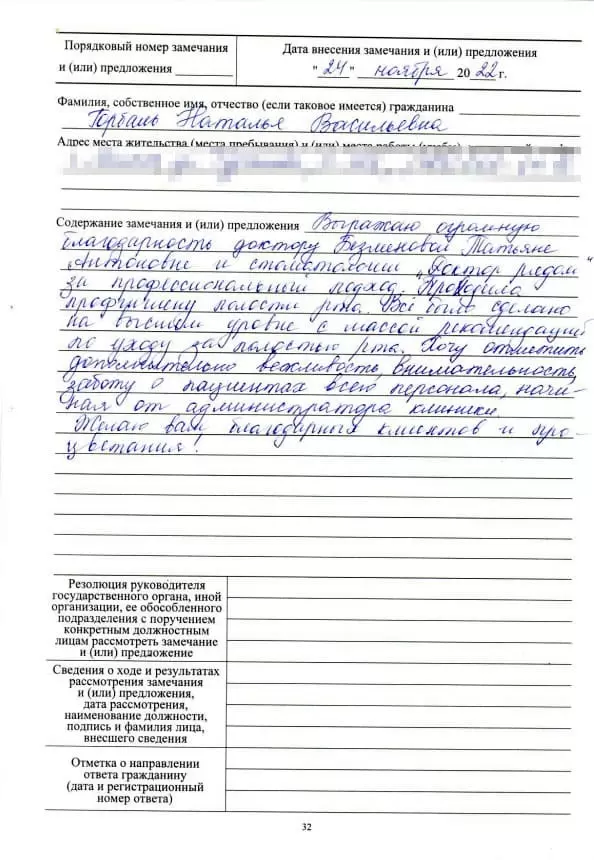 Порядковый номер замечания
и (или) предложения
Дата внесения замечания и (или) предложения
"24" ноября 2022 г.
Фамилия, собственное имя, отчество (если таковое имеется) гражданина
Горбань Наталья Васильевна
Адрес места жительства (места пребывания) и (или) места работы
Содержание замечания и (или) предложения Выражаю огромную
благодарность доктору Безменовой Татьяне
Антоновне и стоматологии "Доктор рядом"
за профессиональный подход. Проходила
профгигиену полости рта. Всё было сделано
на высшем уровне с массой рекомендаций
по уходу за полостью рта. Хочу отметить
дополнительно вежливость, внимательность,
заботу о пациентах всего персонала, начи-
ная от администратора клиники.
Желаю вам благодарных клиентов и про-
цветания!
Резолюция руководителя
государственного органа, иной
организации, ее обособленного
подразделения с поручением
конкретным должностным
лицам рассмотреть замечание
и (или) предложение
Сведения о ходе и результатах
рассмотрения замечания
и (или) предложения,
дата рассмотрения,
наименование должности,
подпись и фамилия лица,
внесшего сведения
Отметка о направлении
ответа гражданину
(дата и регистрационный
номер ответа)
32